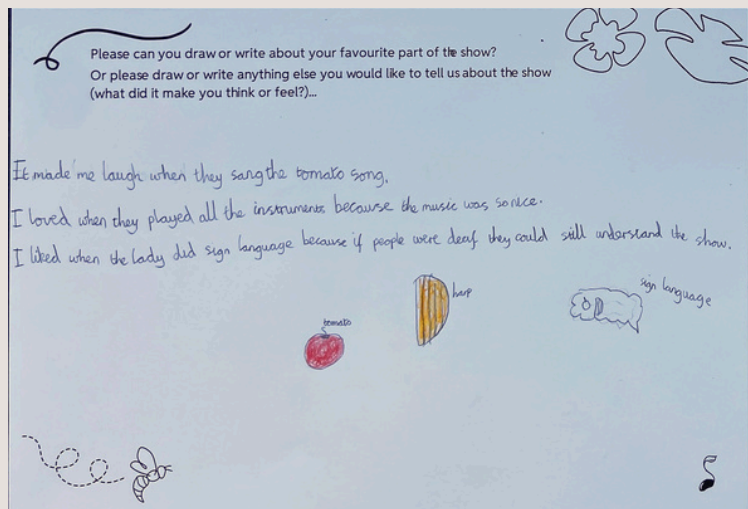 Please can you draw or write about your favourite part of the show?
Or please draw or write anything else you would like to tell us about the show
(what did it make you think or feel?)...
It made me laugh when they sang the tomato song.
I loved when they played all the instruments because the music was so nice.
I liked when the lady did sign language because if people were deaf they could still understand the show.
tomato
harp
sign language